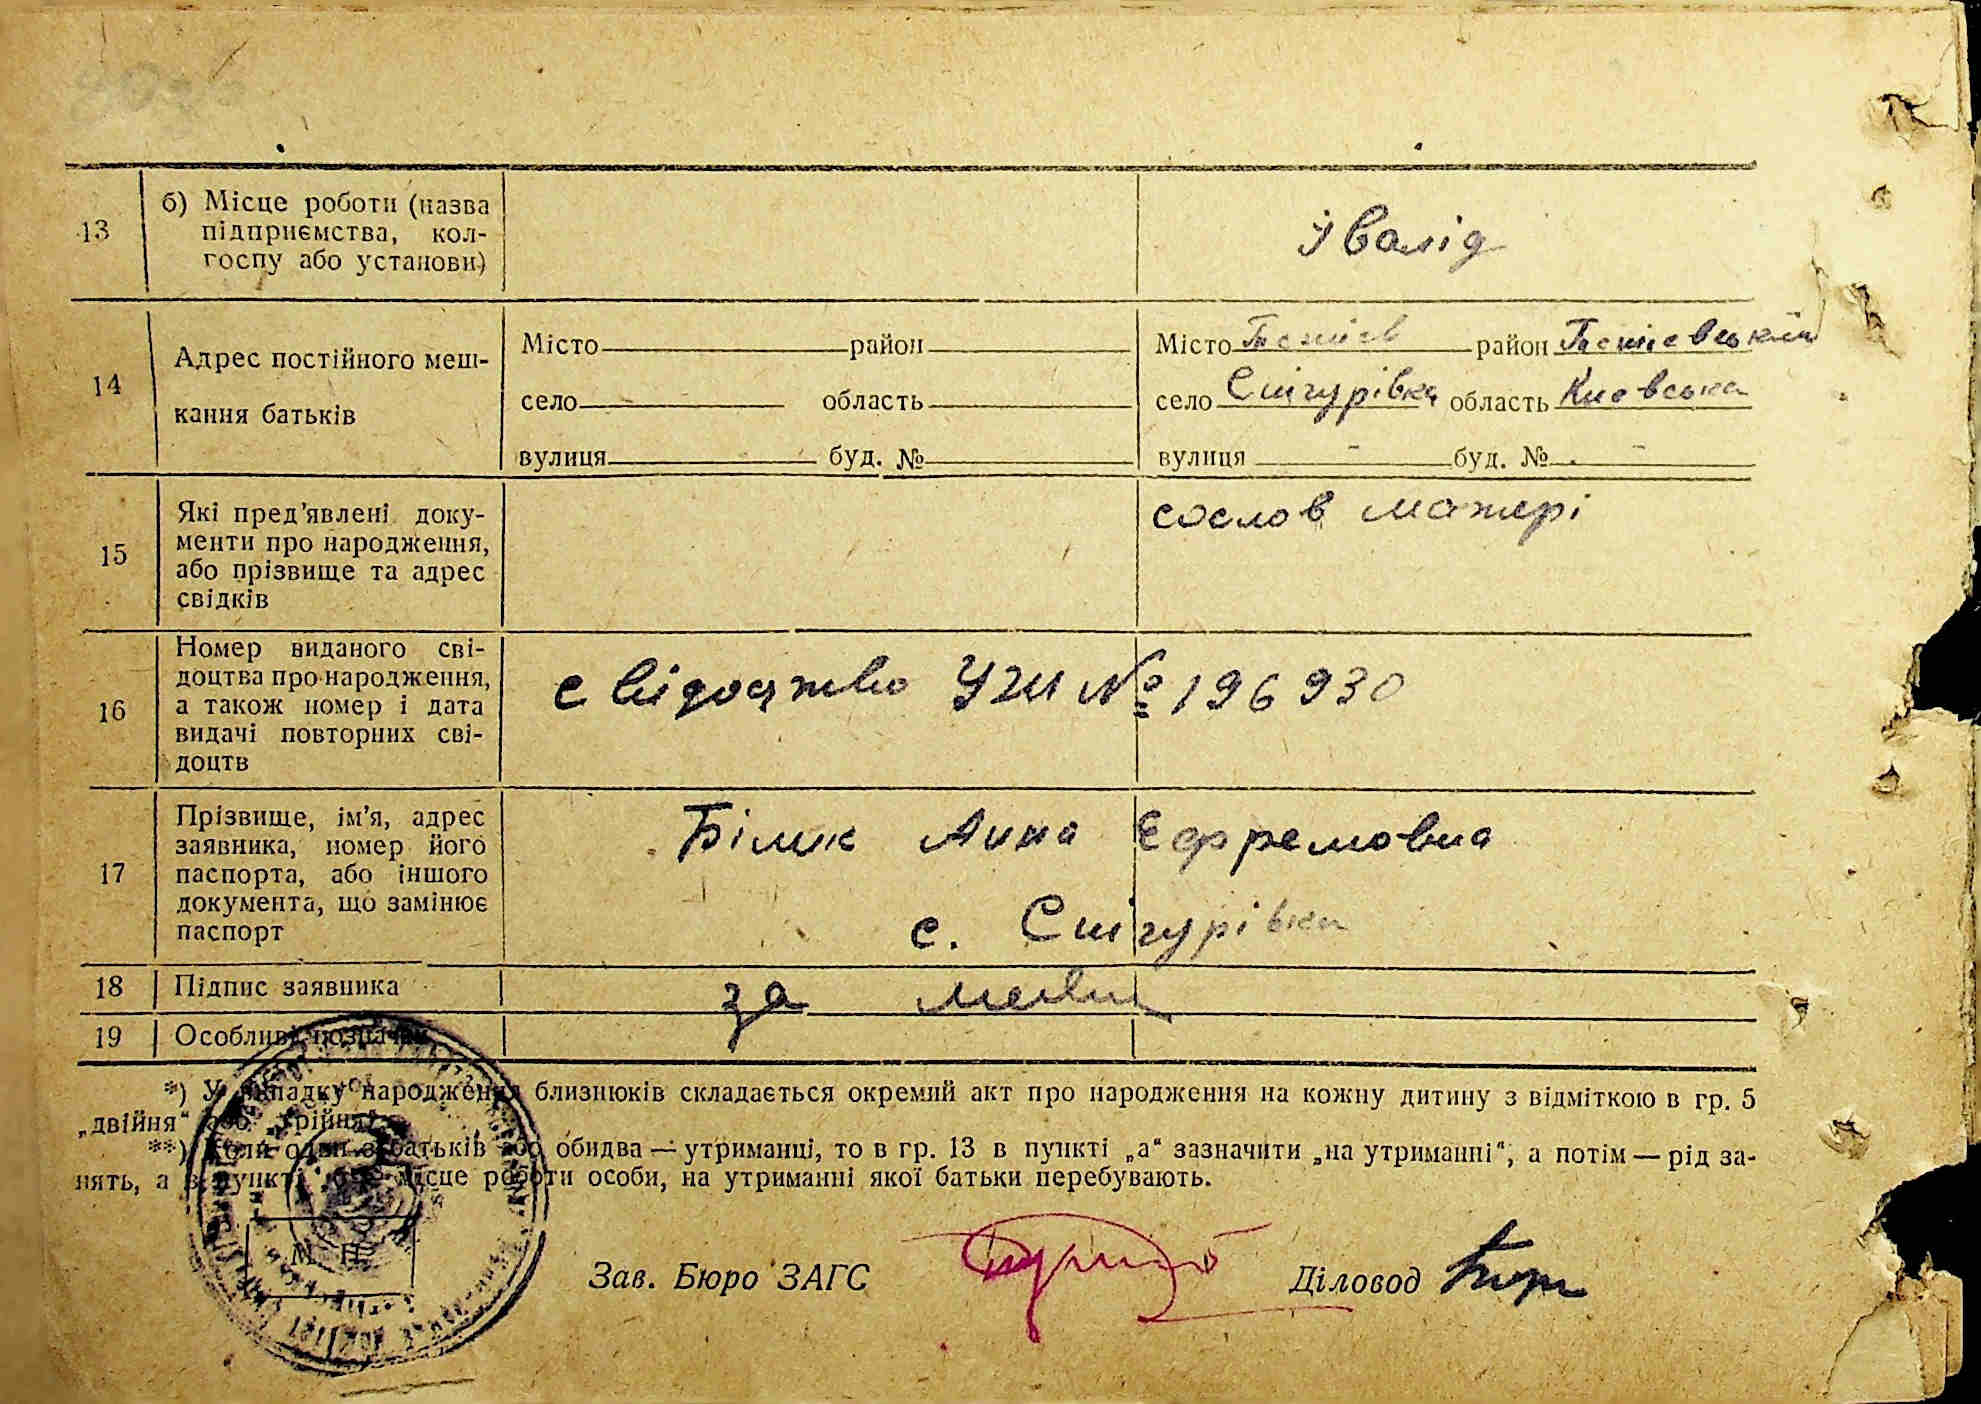 13 б) Місце роботи (назва
підприємства, кол-
госпу або установи)
Івалід
14 Адрес постійного меш-
кання батьків
Місто район
село область
вулиця буд. №
Місто район
село Снігурівка область Киевська
вулиця - буд. № -
15 Які пред'явлені доку-
менти про народження,
або прізвище та адрес
свідків
сослов матері
16 Номер виданого сві-
доцтва про народження,
а також номер і дата
видачі повторних сві-
доцтв
свідоцтво № 196930
17 Прізвище, ім'я, адрес
заявника, номер його
паспорта, або іншого
документа, що замінює
паспорт
Білик Анна Ефремовна
с. Снігурівка
18 Підпис заявника
за
19 Особливі позначки
*) У випадку народження близнюків складається окремий акт про народження на кожну дитину з відміткою в гр. 5
„двійня“ або „трійня“.
**) Коли один з батьків або обидва — утриманці, то в гр. 13 в пункті „а“ зазначити „на утриманні“, а потім — рід за-
нять, а в пункті „б“ місце роботи особи, на утриманні якої батьки перебувають.
М. П.
Зав. Бюро ЗАГС Діловод